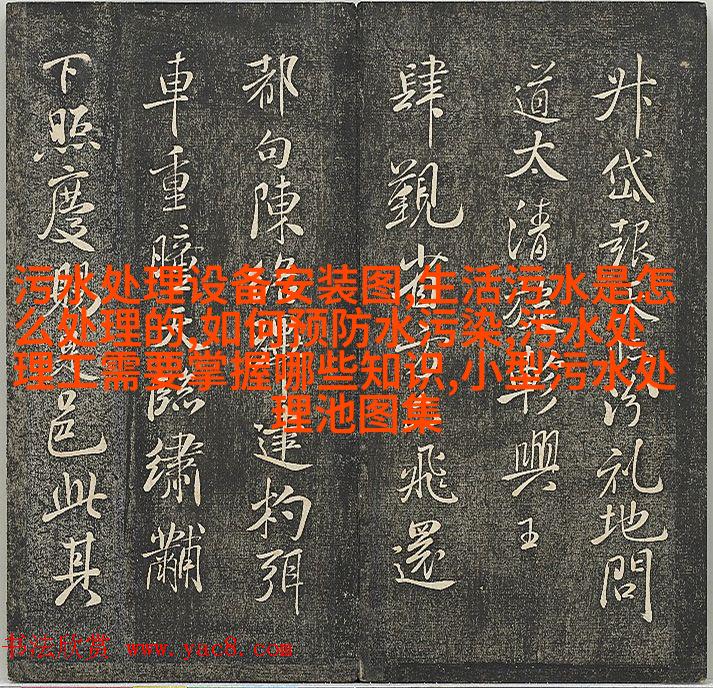 升岱報汾礼地問
道太清興王
肆覲省飛還
都句陳杓弭
車重天臨繡黼
下照慶賜邑此其
污水处理设备安装图,生活污水是怎
么处理的,如何预防水污染,污水处
理工需要掌握哪些知识,小型污水处
理池图集
书法欣赏 www.yac8.com